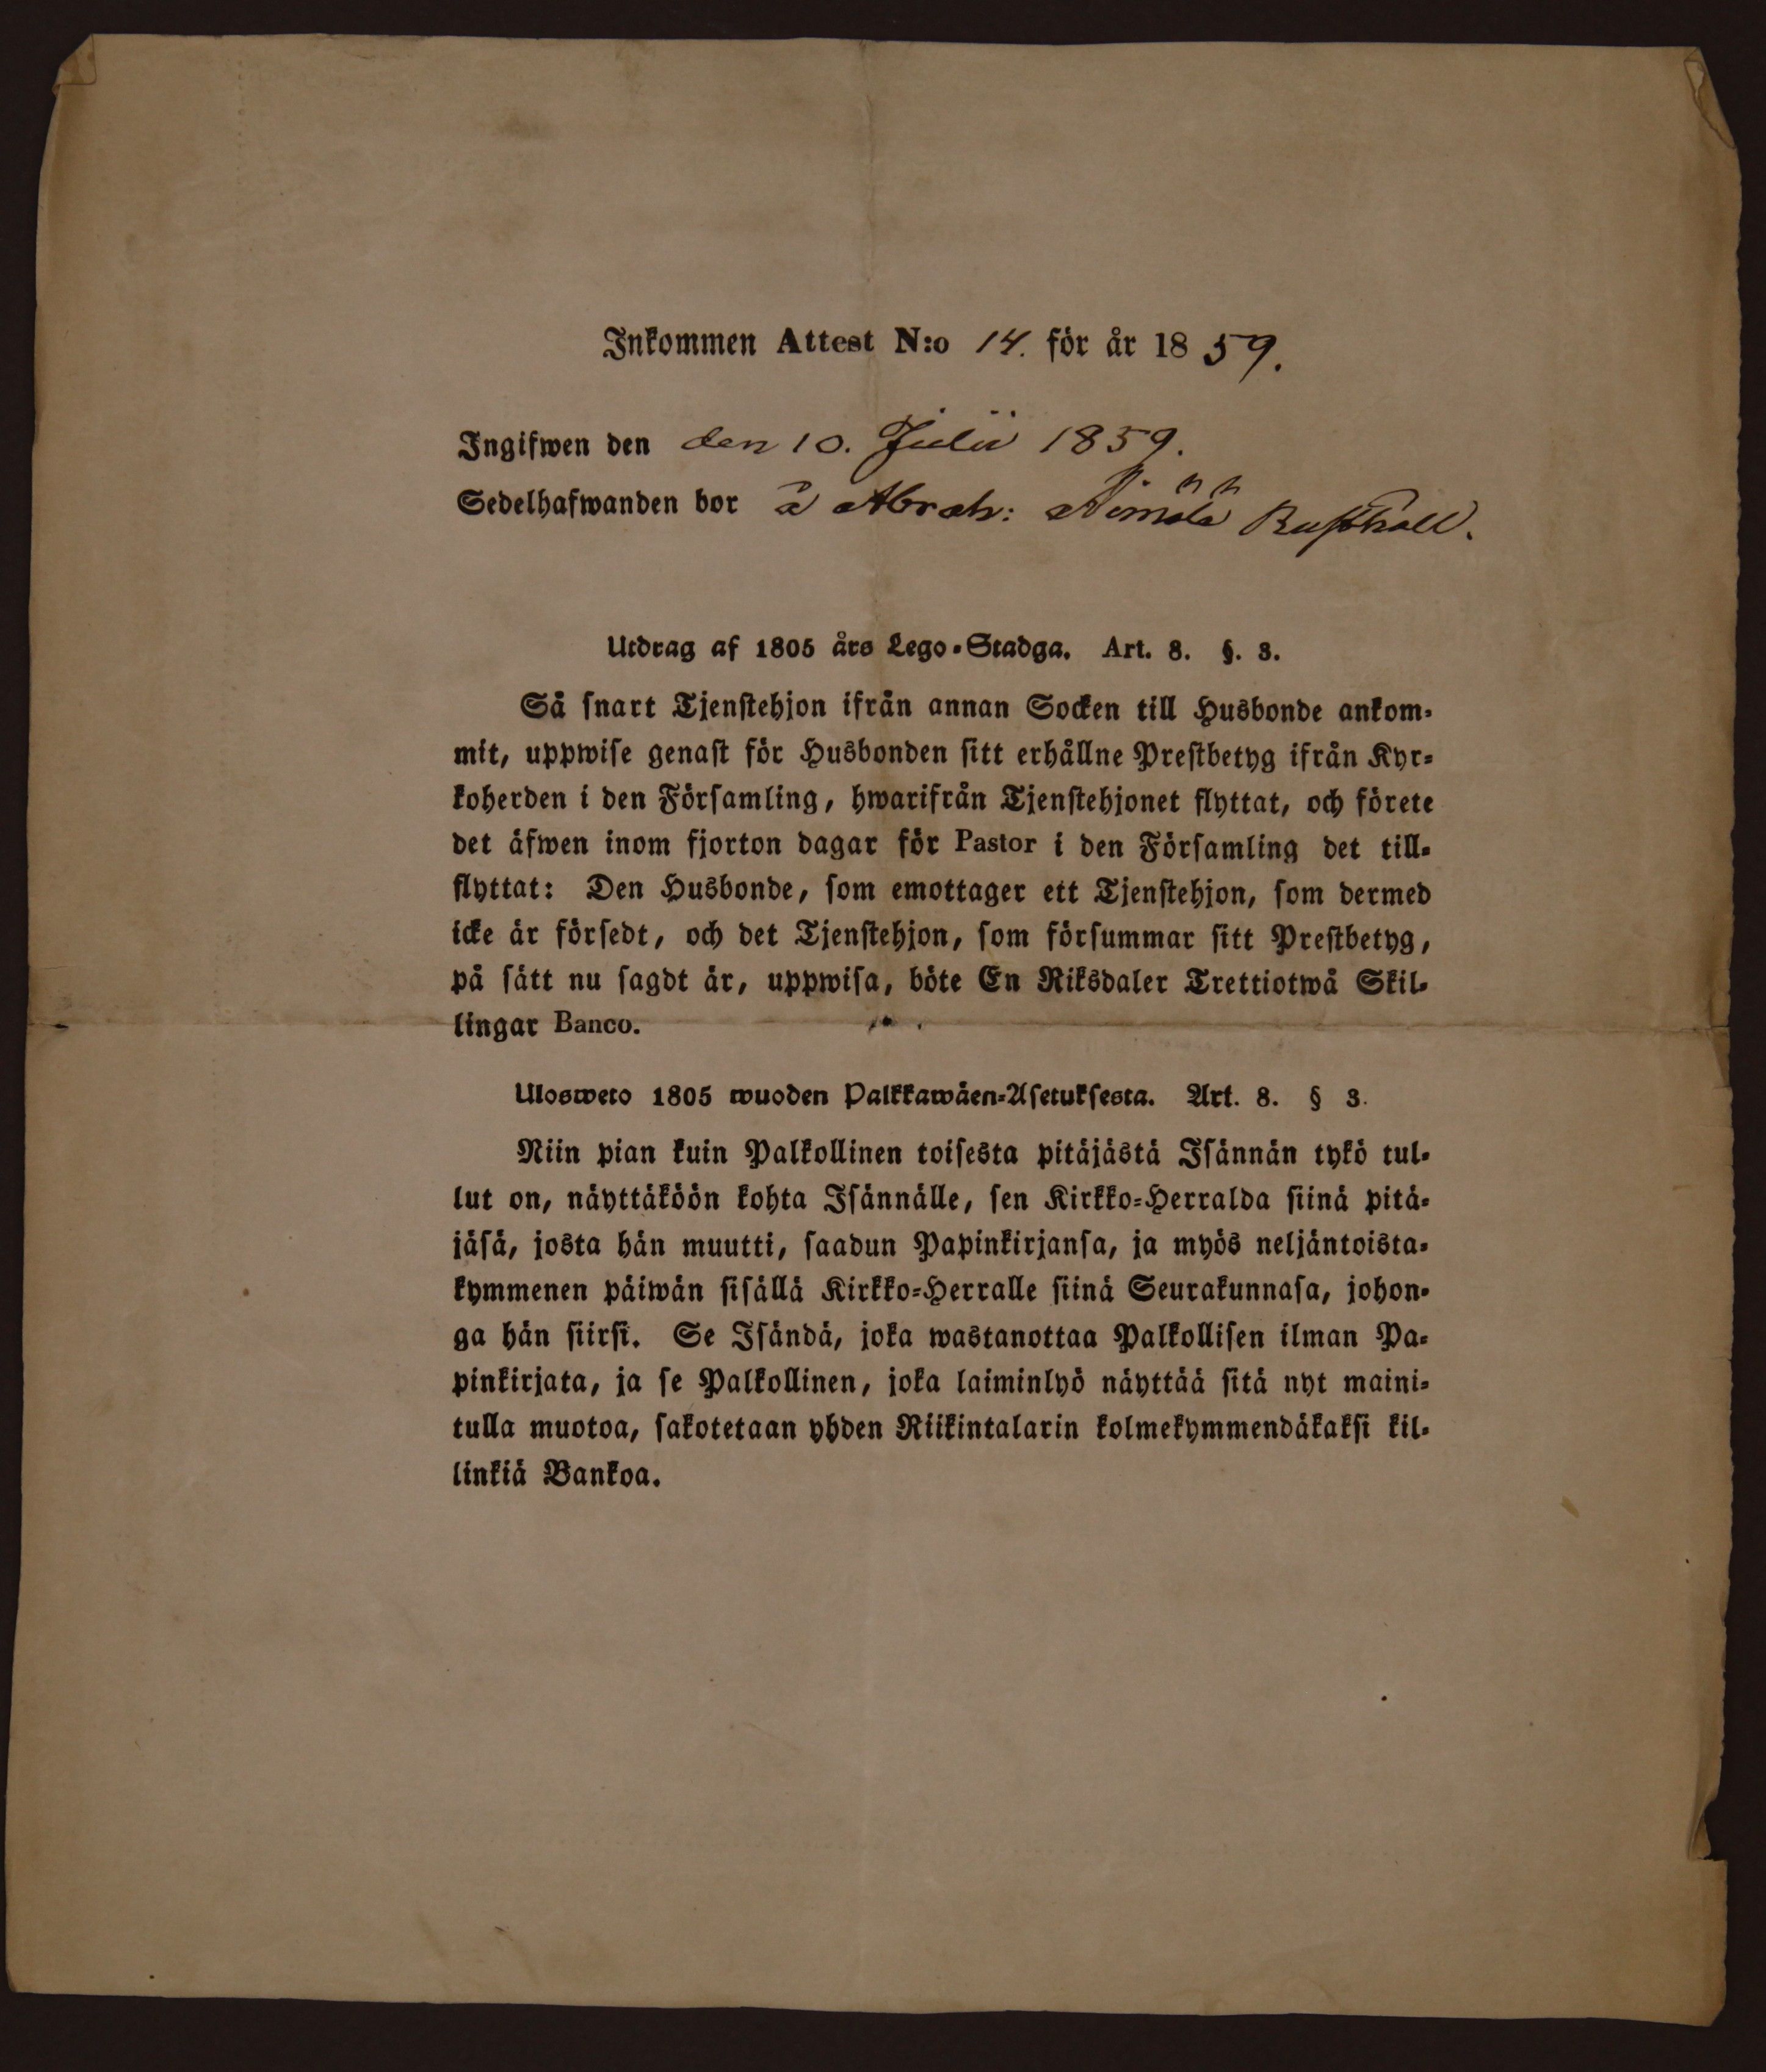 Inkommen Attest N:o 14. för år 1859.
Ingifwen den den 10. Julii 1859.
Sedelhafwanden bor å Abrah: Rusthåll.
Utdrag af 1805 års Lego-Stadga. Art. 8. §. 3.
Så snart Tjenstehjon ifrån annan Socken till Husbonde ankom-
mit, uppwise genast för Husbonden sitt erhållne Prestbetyg ifrån Kyr-
koherden i den Församling, hwarifrån Tjenstehjonet flyttat, och förete
det äfwen inom fjorton dagar för Pastor i den Församling det till-
flyttat: Den Husbonde, som emottager ett Tjenstehjon, som dermed
icke är försedt, och det Tjenstehjon, som försummar sitt Prestbetyg,
på sätt nu sagdt är, uppwisa, böte En Riksdaler Trettiotwå Skil-
lingar Banco.
Ulosweto 1805 wuoden Palkkawäen-Asetuksesta. Art. 8. § 3.
Niin pian kuin Palkollinen toisesta pitäjästä Isännän tykö tul-
lut on, näyttäköön kohta Isännälle, sen Kirkko-Herralda siinä pitä-
jäsä, josta hän muutti, saadun Papinkirjansa, ja myös neljäntoista-
kymmenen päiwän sisällä Kirkko-Herralle siinä Seurakunnasa, johon-
ga hän siirsi. Se Isändä, joka wastanottaa Palkollisen ilman Pa-
pinkirjata, ja se Palkollinen, joka laiminlyö näyttää sitä nyt maini-
tulla muotoa, sakotetaan yhden Riikintalarin kolmekymmendäkaksi kil-
linkiä Bankoa.